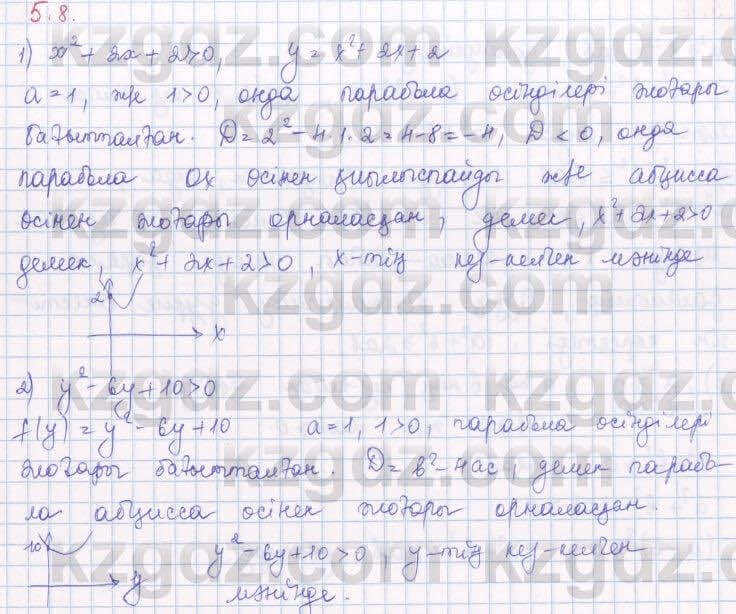 5.8.
1) x²+2x+2>0, y=x²+2x+2
a=1, және 1>0, онда парабола өсінділері жоғары
бағытталған. D=2²-4·1·2=4-8=-4, D<0, онда
парабола Ох осінен қиылыспайды және абцисса
осінен жоғары орналасқан, демек, x²+2x+2>0
демек, x²+2x+2>0, x-тің кез-келген мәнінде
2
x
2) y²-6y+10>0
f(y)=y²-6y+10 a=1, 1>0, парабола өсінділері
жоғары бағытталған. D=b²-4ac, демек парабо-
ла абцисса осінен жоғары орналасқан.
10
y y²-6y+10>0, y-тің кез-келген
мәнінде.
kzgdz.com